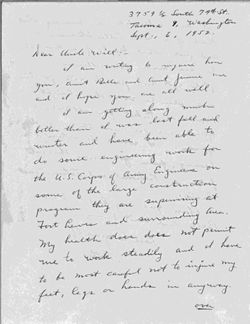 3759½ South 74th St.
Tacoma 9, Washington
Sept. 6, 1952.
Dear Uncle Will:-
I am writing to inquire how
you, Aunt Belle and Aunt Jennie are
and I hope you are all well.
I am getting along much
better than I was last fall and
winter and have been able to
do some engineering work for
the U.S. Corps of Army Engineers on
some of the large construction
program they are supervising at
Fort Lewis and surrounding area.
My health does not permit
me to work steadily and I have
to be most careful not to injure my
feet, legs or hands in anyway.
over